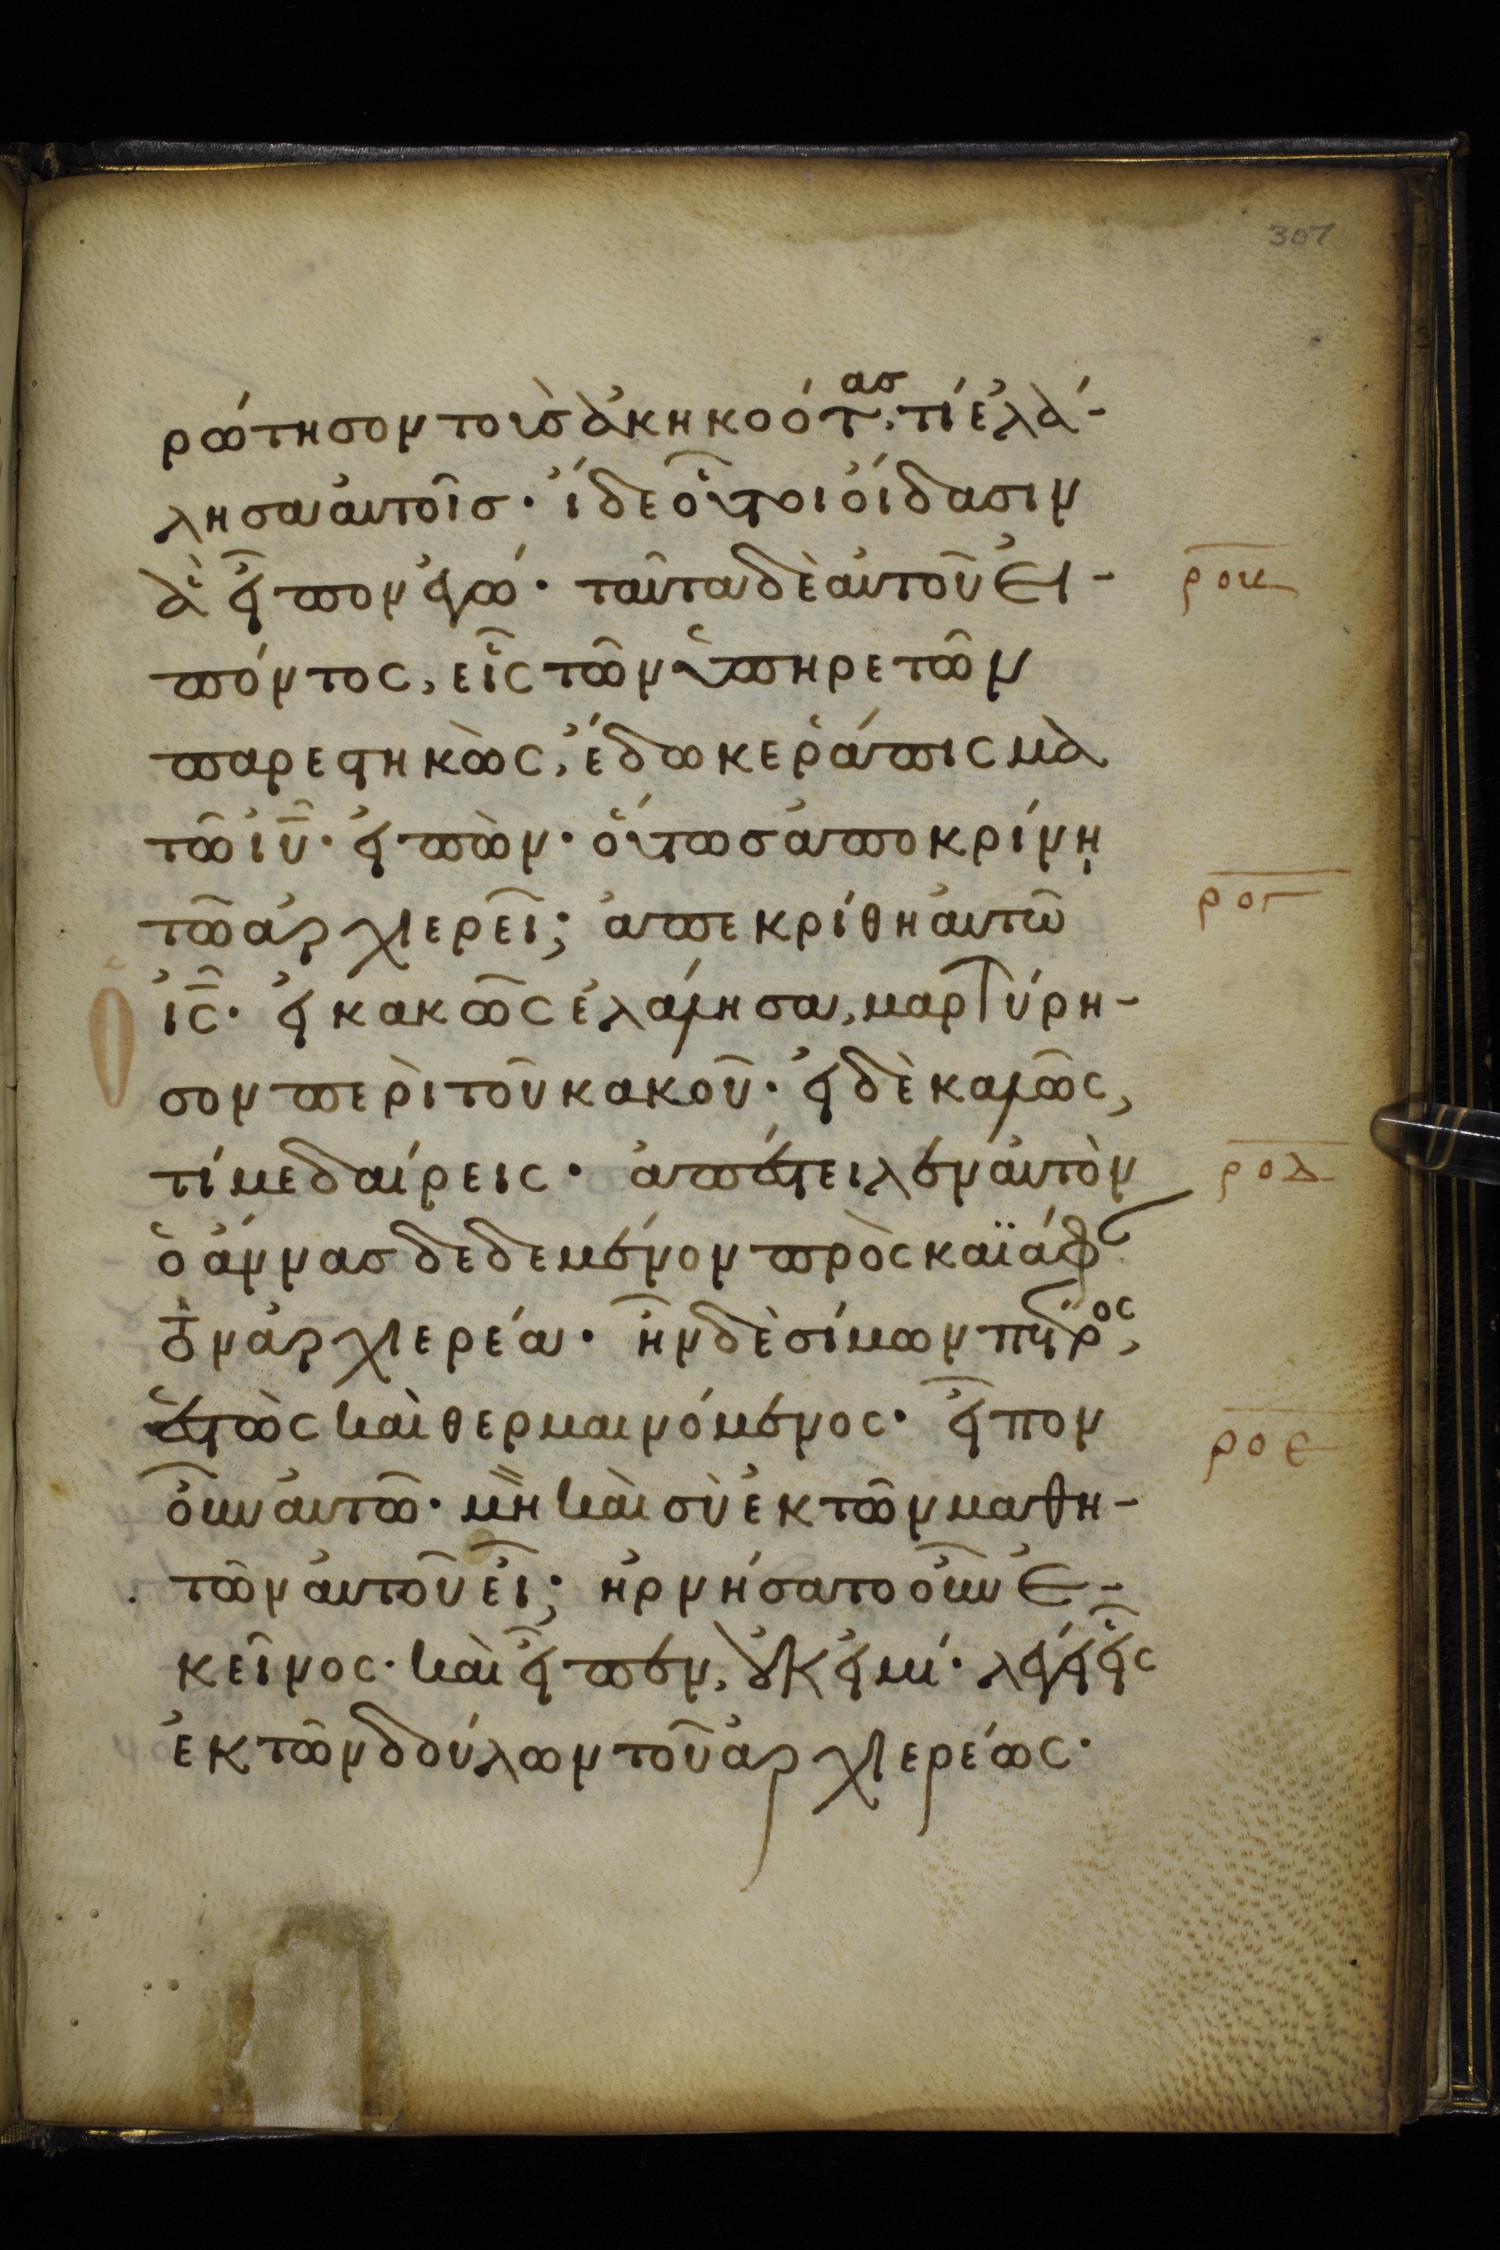 307
ρώτησον τοὺσ ἀκηκοότας· τί ἐλά-
λησα αὐτοῖσ· ἴδε οὗτοι οἴδασιν
ἃ εἶπον ἐγώ· ταῦτα δὲ αὐτοῦ εἰ-
ροβ
πόντος, εἷς τῶν ὑπηρετῶν
παρεστηκὼς, ἔδωκε ῥάπισμα
τῶ ἰῦ· εἰπὼν· οὕτωσ ἀποκρίνη
τῶ ἀρχιερεῖ; ἀπεκρίθη αὐτῶ
ρογ
ἰς· εἰ κακῶς ἐλάλησα, μαρτύρη-
σον περὶ τοῦ κακοῦ· εἰ δὲ καλῶς,
τί με δαίρεις· ἀπέστειλεν αὐτὸν
ροδ
ὁ ἄννασ δεδεμένον πρὸς καϊάφ
τὸν ἀρχιερέα· ἦν δὲ σίμων πέτρος,
ἑστὼς καὶ θερμαινόμενος· εἶπον
ροε
οὖν αὐτῶ· μὴ καὶ σὺ ἐκ τῶν μαθη-
τῶν αὐτοῦ εἶ; ἠρνήσατο οὖν ἐ-
κεῖνος· καὶ εἶπεν, οὐκ εἰμί· λέγει εἷς
ἐκ τῶν δούλων τοῦ ἀρχιερέως·